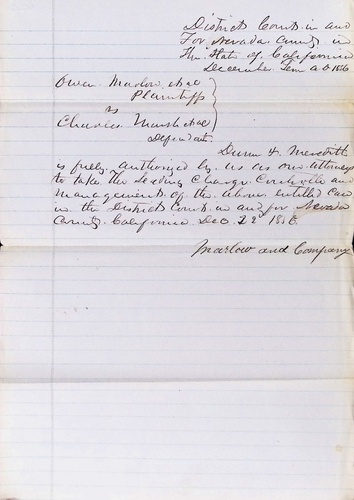 District Court in and
For Nevada County in
The State of California
December Term A D 1856
Owen Marlow et al
Plaintiffs
vs
Charles Marsh et al
Defendants
Dunn & Meredith
is fully authorized by us as our attorneys
to take the Leading Charge Controll and
management of the above entitled Case
in the District Court in and for Nevada
County California Dec. 22d 1856.
Marlow and Company